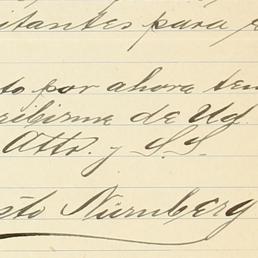 itantes para e
to por ahora ten
cribirme de Ud.
Atto. y S.S.
sto Nürnberg